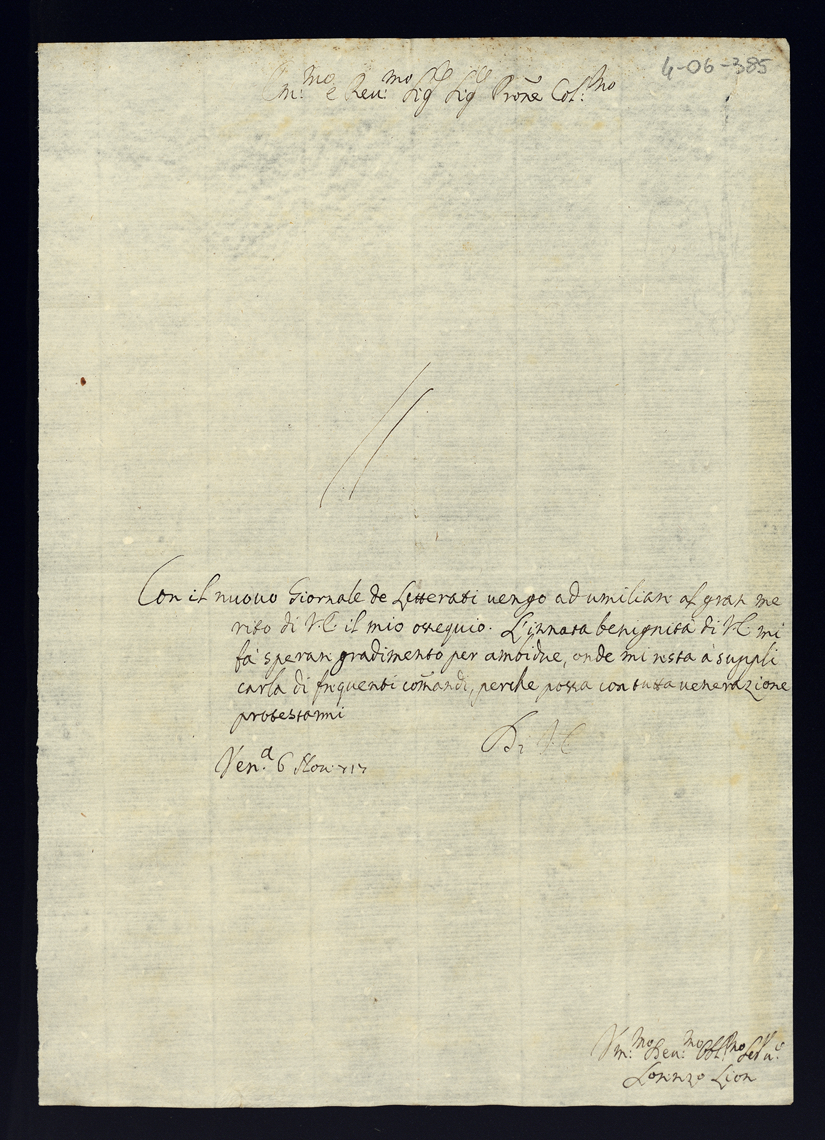 4-06-385
Em:mo e Reu:mo Sig.r Sig.r Prōne Col:mo
Con il nuouo Giornale de Letterati uengo ad umiliare al gran me
rito di V.E. il mio ossequio. L'innata benignità di V.E. mi
fà sperare gradimento per ambidue, onde mi resta à suppli
carla di frequenti com̄andi, perche possa con tutta uenerazione
protestarmi
Di V.E.
Ven:a 6 Nou: 717
Vm:mo Deu:mo Obl:mo Seru:e
Lorenzo Lion